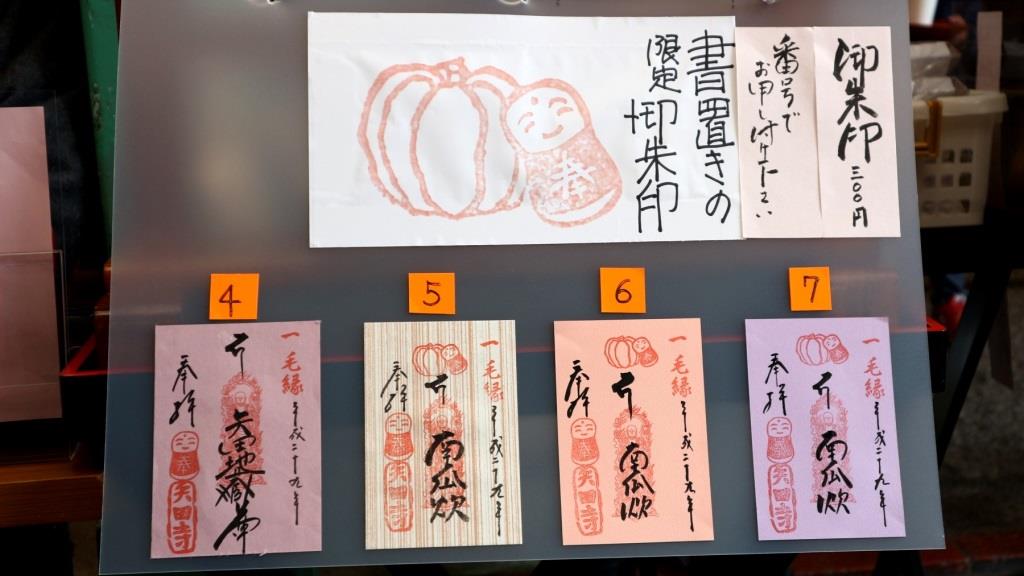 御朱印 三〇〇円
番号で
お申し付け下さい
書置きの
限定 御朱印
4
5
6
7
一毛縁 平成二十九年
矢田地蔵尊
奉拝
矢田寺
一毛縁 平成二十九年
南瓜炊
奉拝
矢田寺
一毛縁 平成二十九年
南瓜炊
奉拝
矢田寺
一毛縁 平成二十九年
南瓜炊
奉拝
矢田寺